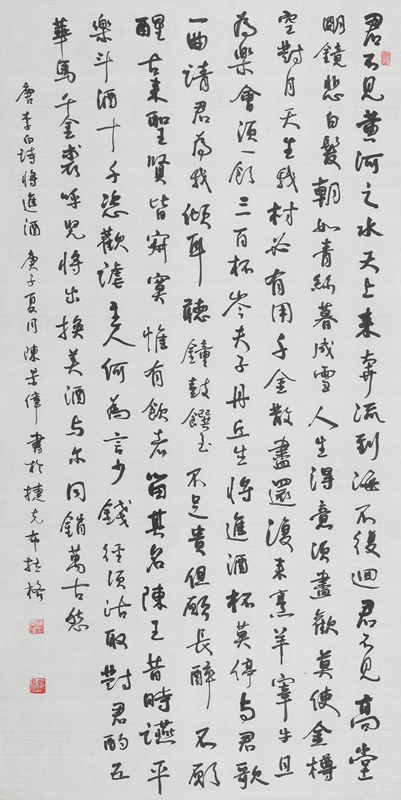 君不見黃河之水天上來奔流到海不復迴君不見高堂
明鏡悲白髮朝如青絲暮成雪人生得意須盡歡莫使金樽
空對月天生我材必有用千金散盡還復來烹羊宰牛且
為樂會須一飲三百杯岑夫子丹丘生將進酒杯莫停与君歌
一曲請君為我傾耳聽鐘鼓饌玉不足貴但願長醉不願
醒古來聖賢皆寂寞惟有飲者留其名陳王昔時讌平
樂斗酒十千恣歡謔主人何為言少錢徑須沽取對君酌五
華馬千金裘呼兒將出換美酒与尔同銷萬古愁
唐李白詩將進酒 庚子夏月陳偉書於捷克布拉格